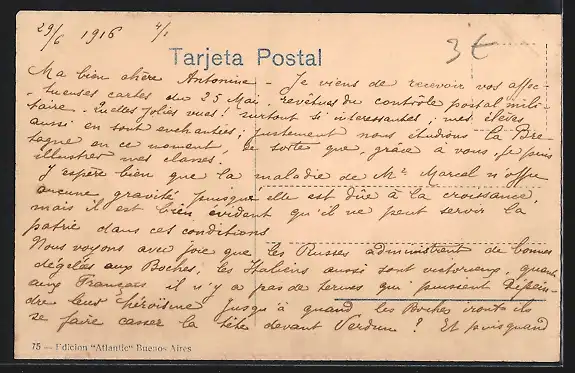 29/6 1916 4/1
3€
Tarjeta Postal
Ma bien chère Antonine - Je viens de recevoir vos affec-
tueuses cartes du 25 Mai, revêtues du contrôle postal mili-
taire. Quelles jolies vues! surtout si intéressantes; mes élèves
aussi en sont enchantées; justement nous étudions la Bre-
tagne en ce moment, de sorte que, grâce à vous, je puis
illustrer mes classes.
J'espère bien que la maladie de Mr Marcel n'offre
aucune gravité puisqu'elle est dûe à la croissance,
mais il est bien évident qu'il ne peut servir la
patrie dans ces conditions
Nous voyons avec joie que les Russes administrent de bonnes
dégelés aux Boches; les Italiens aussi sont victorieux, quant
aux Français il n'y a pas de termes qui puissent dépein-
dre leur héroïsme Jusqu'à quand les Boches iront ils
se faire casser la tête devant Verdun? Et puisquand
75 — Edicion "Atlantic" Buenos Aires